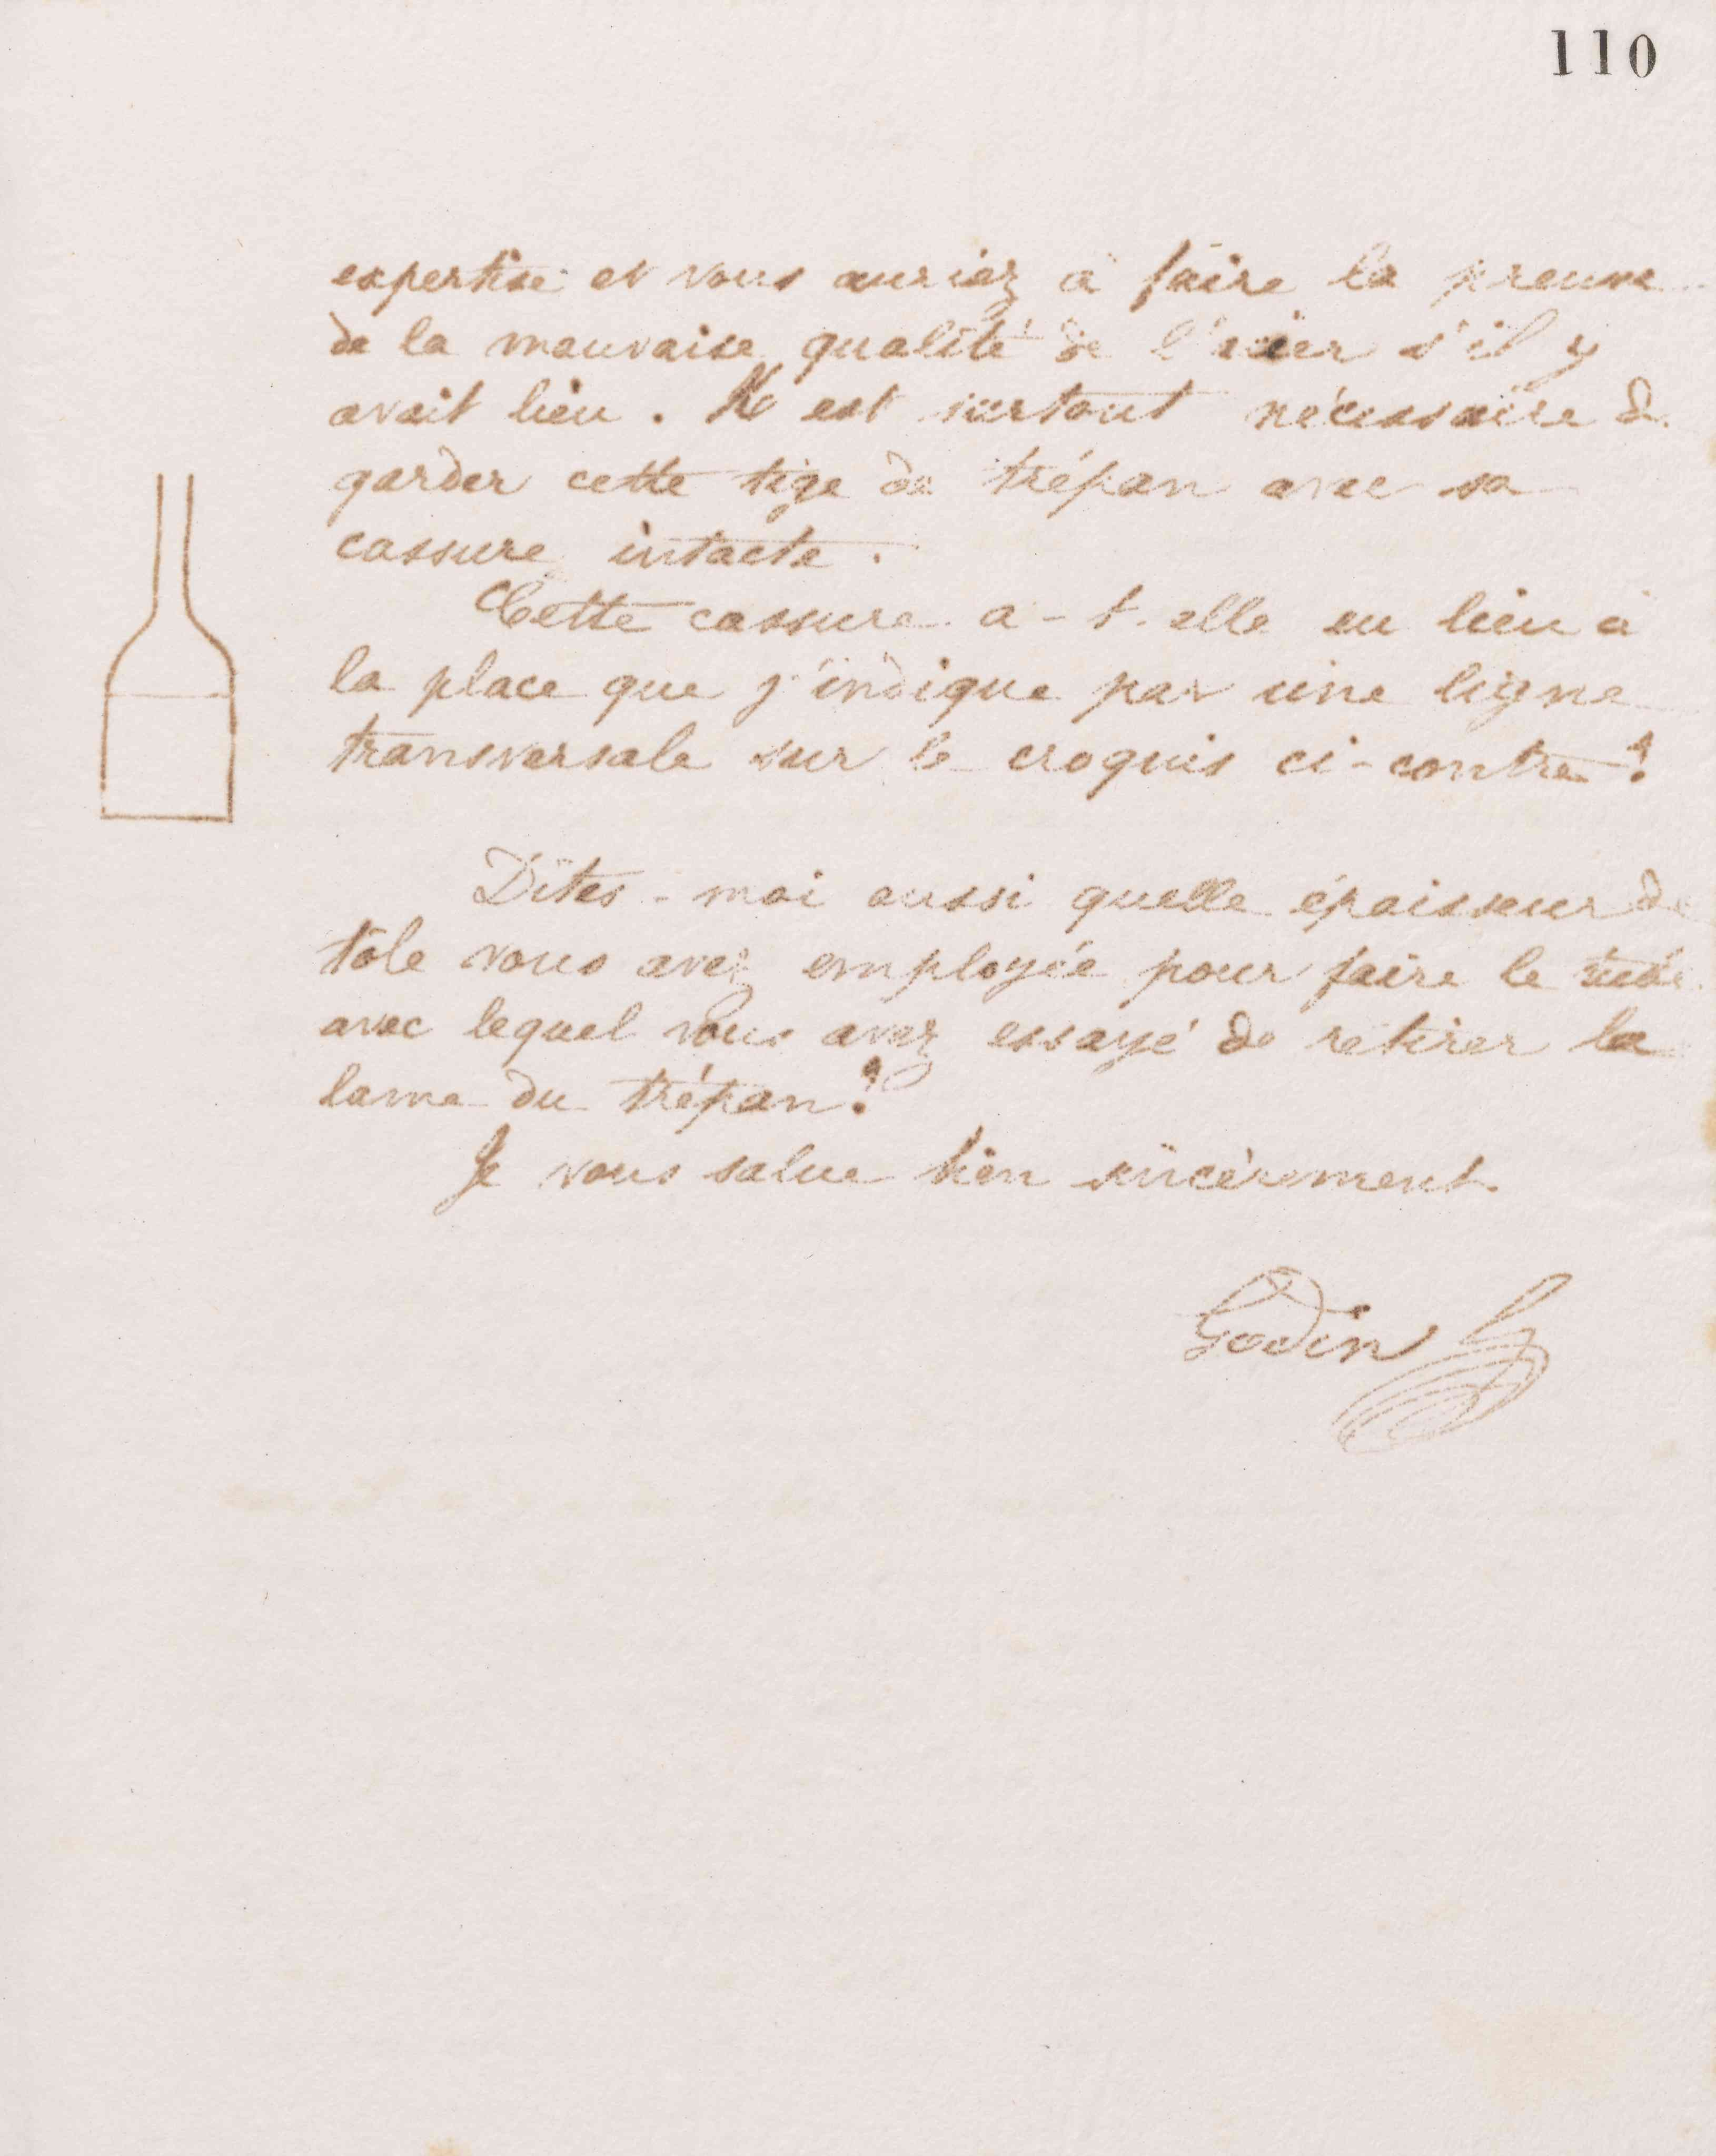 110
expertise et vous auriez à faire la preuve
de la mauvaise qualité de l'acier s'il y
avait lieu. Il est surtout nécessaire de
garder cette tige de trépan avec sa
cassure intacte.
Cette cassure a-t-elle eu lieu à
la place que j'indique par une ligne
transversale sur le croquis ci-contre?
Dites-moi aussi quelle épaisseur de
tôle vous avez employée pour faire le tube
avec lequel vous avez essayé de retirer la
lame du trépan?
Je vous salue bien sincèrement.
Godin